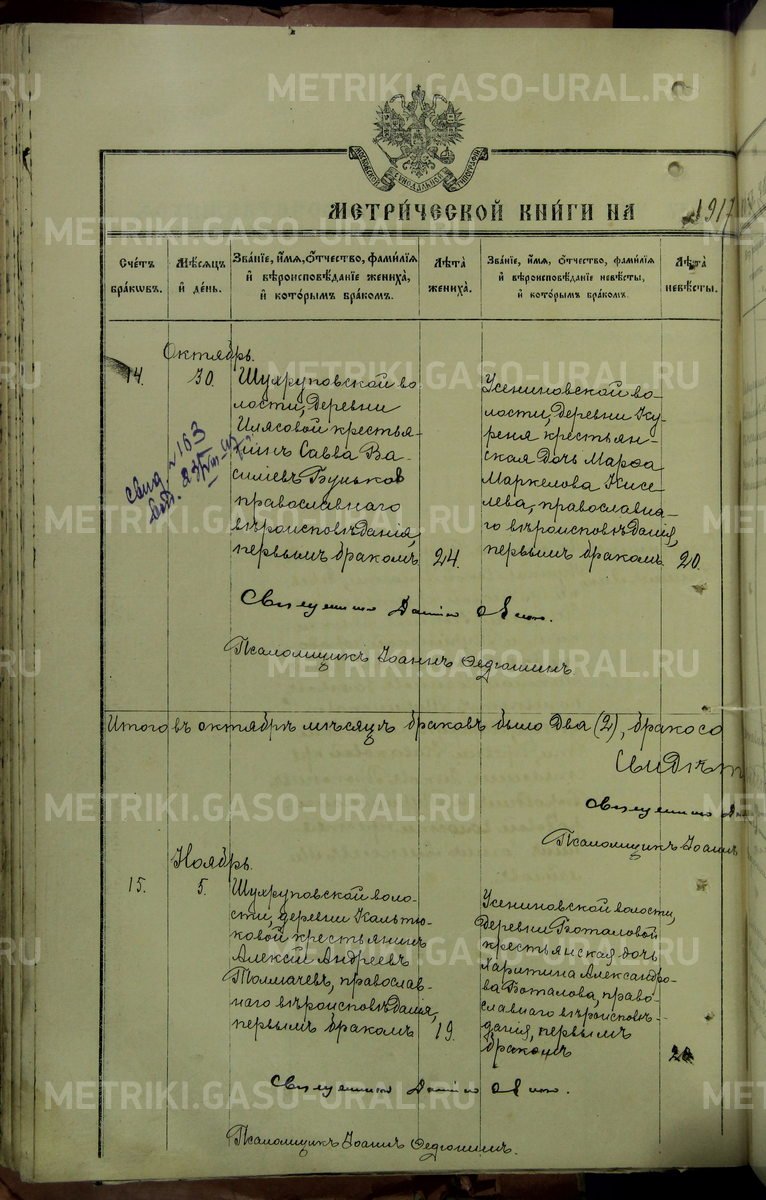 МОСКОВСКОЙ СѴНОДАЛЬНОЙ ТИПОГРАФІИ
МЕТРИ́ЧЕСКОЙ КНИ́ГИ НА 1917
Счéтъ бра́кѡвъ.
Мѣ́сяцъ и҆ де́нь.
Зва́нїе, и҆́мя, ѻ҆́тчество, фами́лїя и҆ вѣроисповѣ́данїе жениха̀, и҆ кото́рымъ бра́комъ.
Лѣ́та жениха̀.
Зва́нїе, и҆́мя, ѻ҆́тчество, фами́лїя и҆ вѣроисповѣ́данїе невѣ́сты, и҆ кото́рымъ бра́комъ.
Лѣ́та невѣ́сты.
Октябрь.
14.
30.
Шухруповской во
лости, деревни
Илясовой крестья-
нинъ Савва Ва-
силіевъ Буньков
православнаго
вѣроисповѣданія,
первымъ бракомъ
24.
Усениновской во-
лости, деревни Ку-
реня крестьян-
ская дочь Марѳа
Маркелова Кисе
лева, православна-
го вѣроисповѣданія,
первымъ бракомъ
20.
свид. №163
Священникъ
Псаломщикъ Іоаннъ Федюшинъ.
Итого въ октябрѣ мѣсяцѣ браковъ было два (2), бракосо
Свидѣт
Священникъ
Псаломщикъ Іоаннъ
Ноябрь.
15.
5.
Шухруповской воло-
сти, деревни Кальтю-
ковой крестьянинъ
Алексій Андреевъ
Толмачевъ, православ-
наго вѣроисповѣданія,
первымъ бракомъ
19.
Усениновской волости,
деревни Боталовой
крестьянская дочь
Харитина Александро-
ва Боталова, право-
славнаго вѣроисповѣ-
данія, первымъ
бракомъ
Священникъ
Псаломщикъ Іоаннъ Федюшинъ.
METRIKI.GASO-URAL.RU